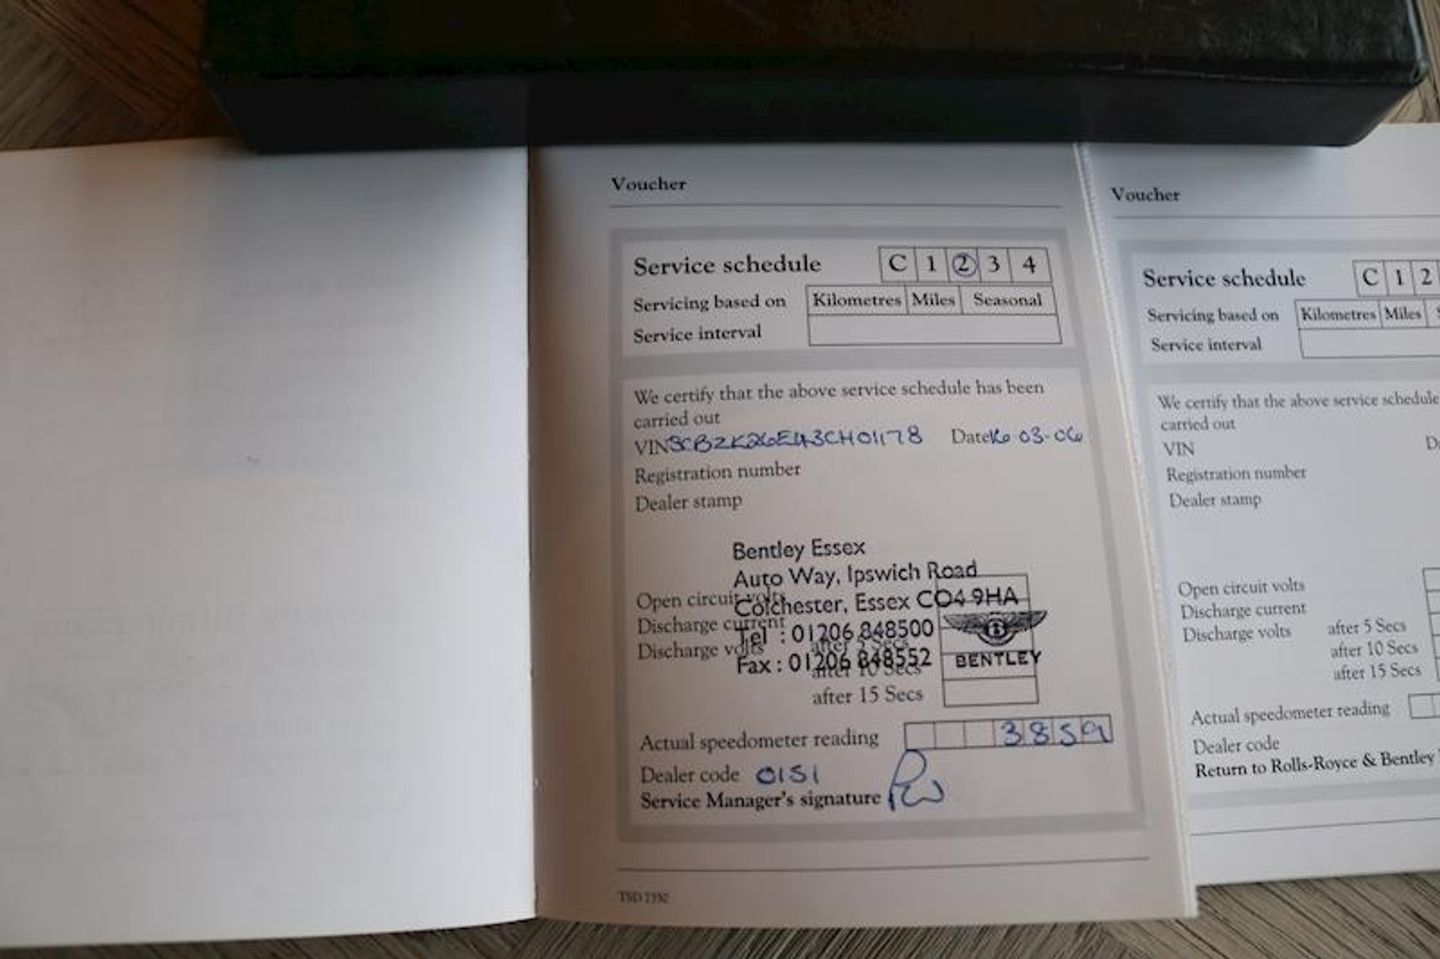 Voucher
Service schedule C 1 2 3 4
Servicing based on Kilometres Miles Seasonal
Service interval
We certify that the above service schedule has been
carried out
VIN SCBZK26E43CH01178 Date 16-03-06
Registration number
Dealer stamp
Bentley Essex
Auto Way, Ipswich Road
Colchester, Essex CO4 9HA
Tel : 01206 848500
Fax : 01206 848552
B
BENTLEY
Open circuit volts
Discharge current
Discharge volts after 5 Secs
after 10 Secs
after 15 Secs
Actual speedometer reading 3859
Dealer code 0151
Service Manager's signature
TSD 7350
Voucher
Service schedule C 1 2
Servicing based on Kilometres Miles
Service interval
We certify that the above service schedule
carried out
VIN
Registration number
Dealer stamp
Open circuit volts
Discharge current
Discharge volts after 5 Secs
after 10 Secs
after 15 Secs
Actual speedometer reading
Dealer code
Return to Rolls-Royce & Bentley